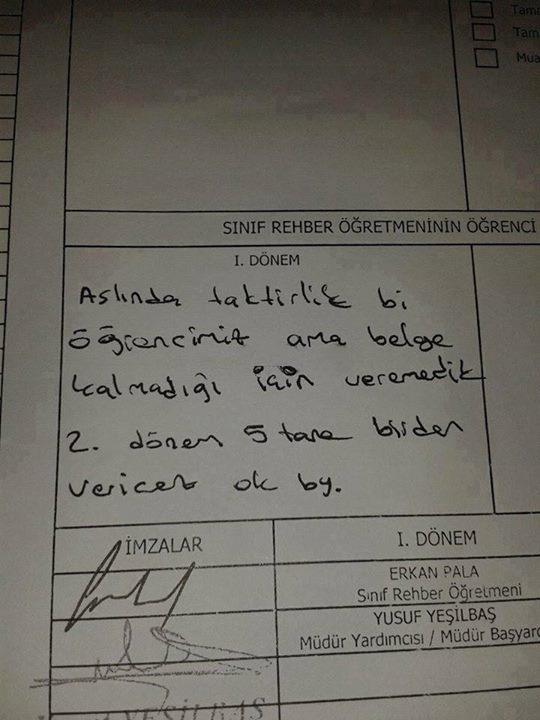 Tama
Tam
Mua
SINIF REHBER ÖĞRETMENİNİN ÖĞRENCİ
I. DÖNEM
Aslında taktirlik bi
öğrencimiz ama belge
kalmadığı için veremedik
2. dönem 5 tane birden
vericez ok by.
İMZALAR
I. DÖNEM
ERKAN PALA
Sınıf Rehber Öğretmeni
YUSUF YEŞİLBAŞ
Müdür Yardımcısı / Müdür Başyard
YEŞİLBAŞ